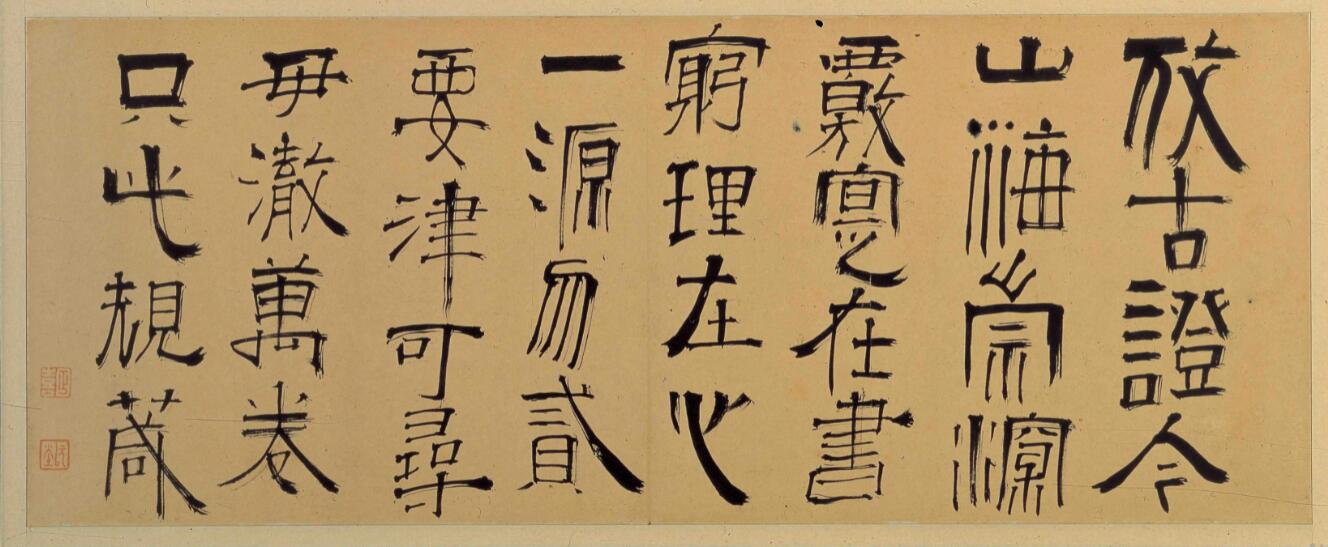 攷古證今
山海崇深
覈寔在書
窮理在心
一源勿貳
要津可尋
毋澈萬卷
只此規葴